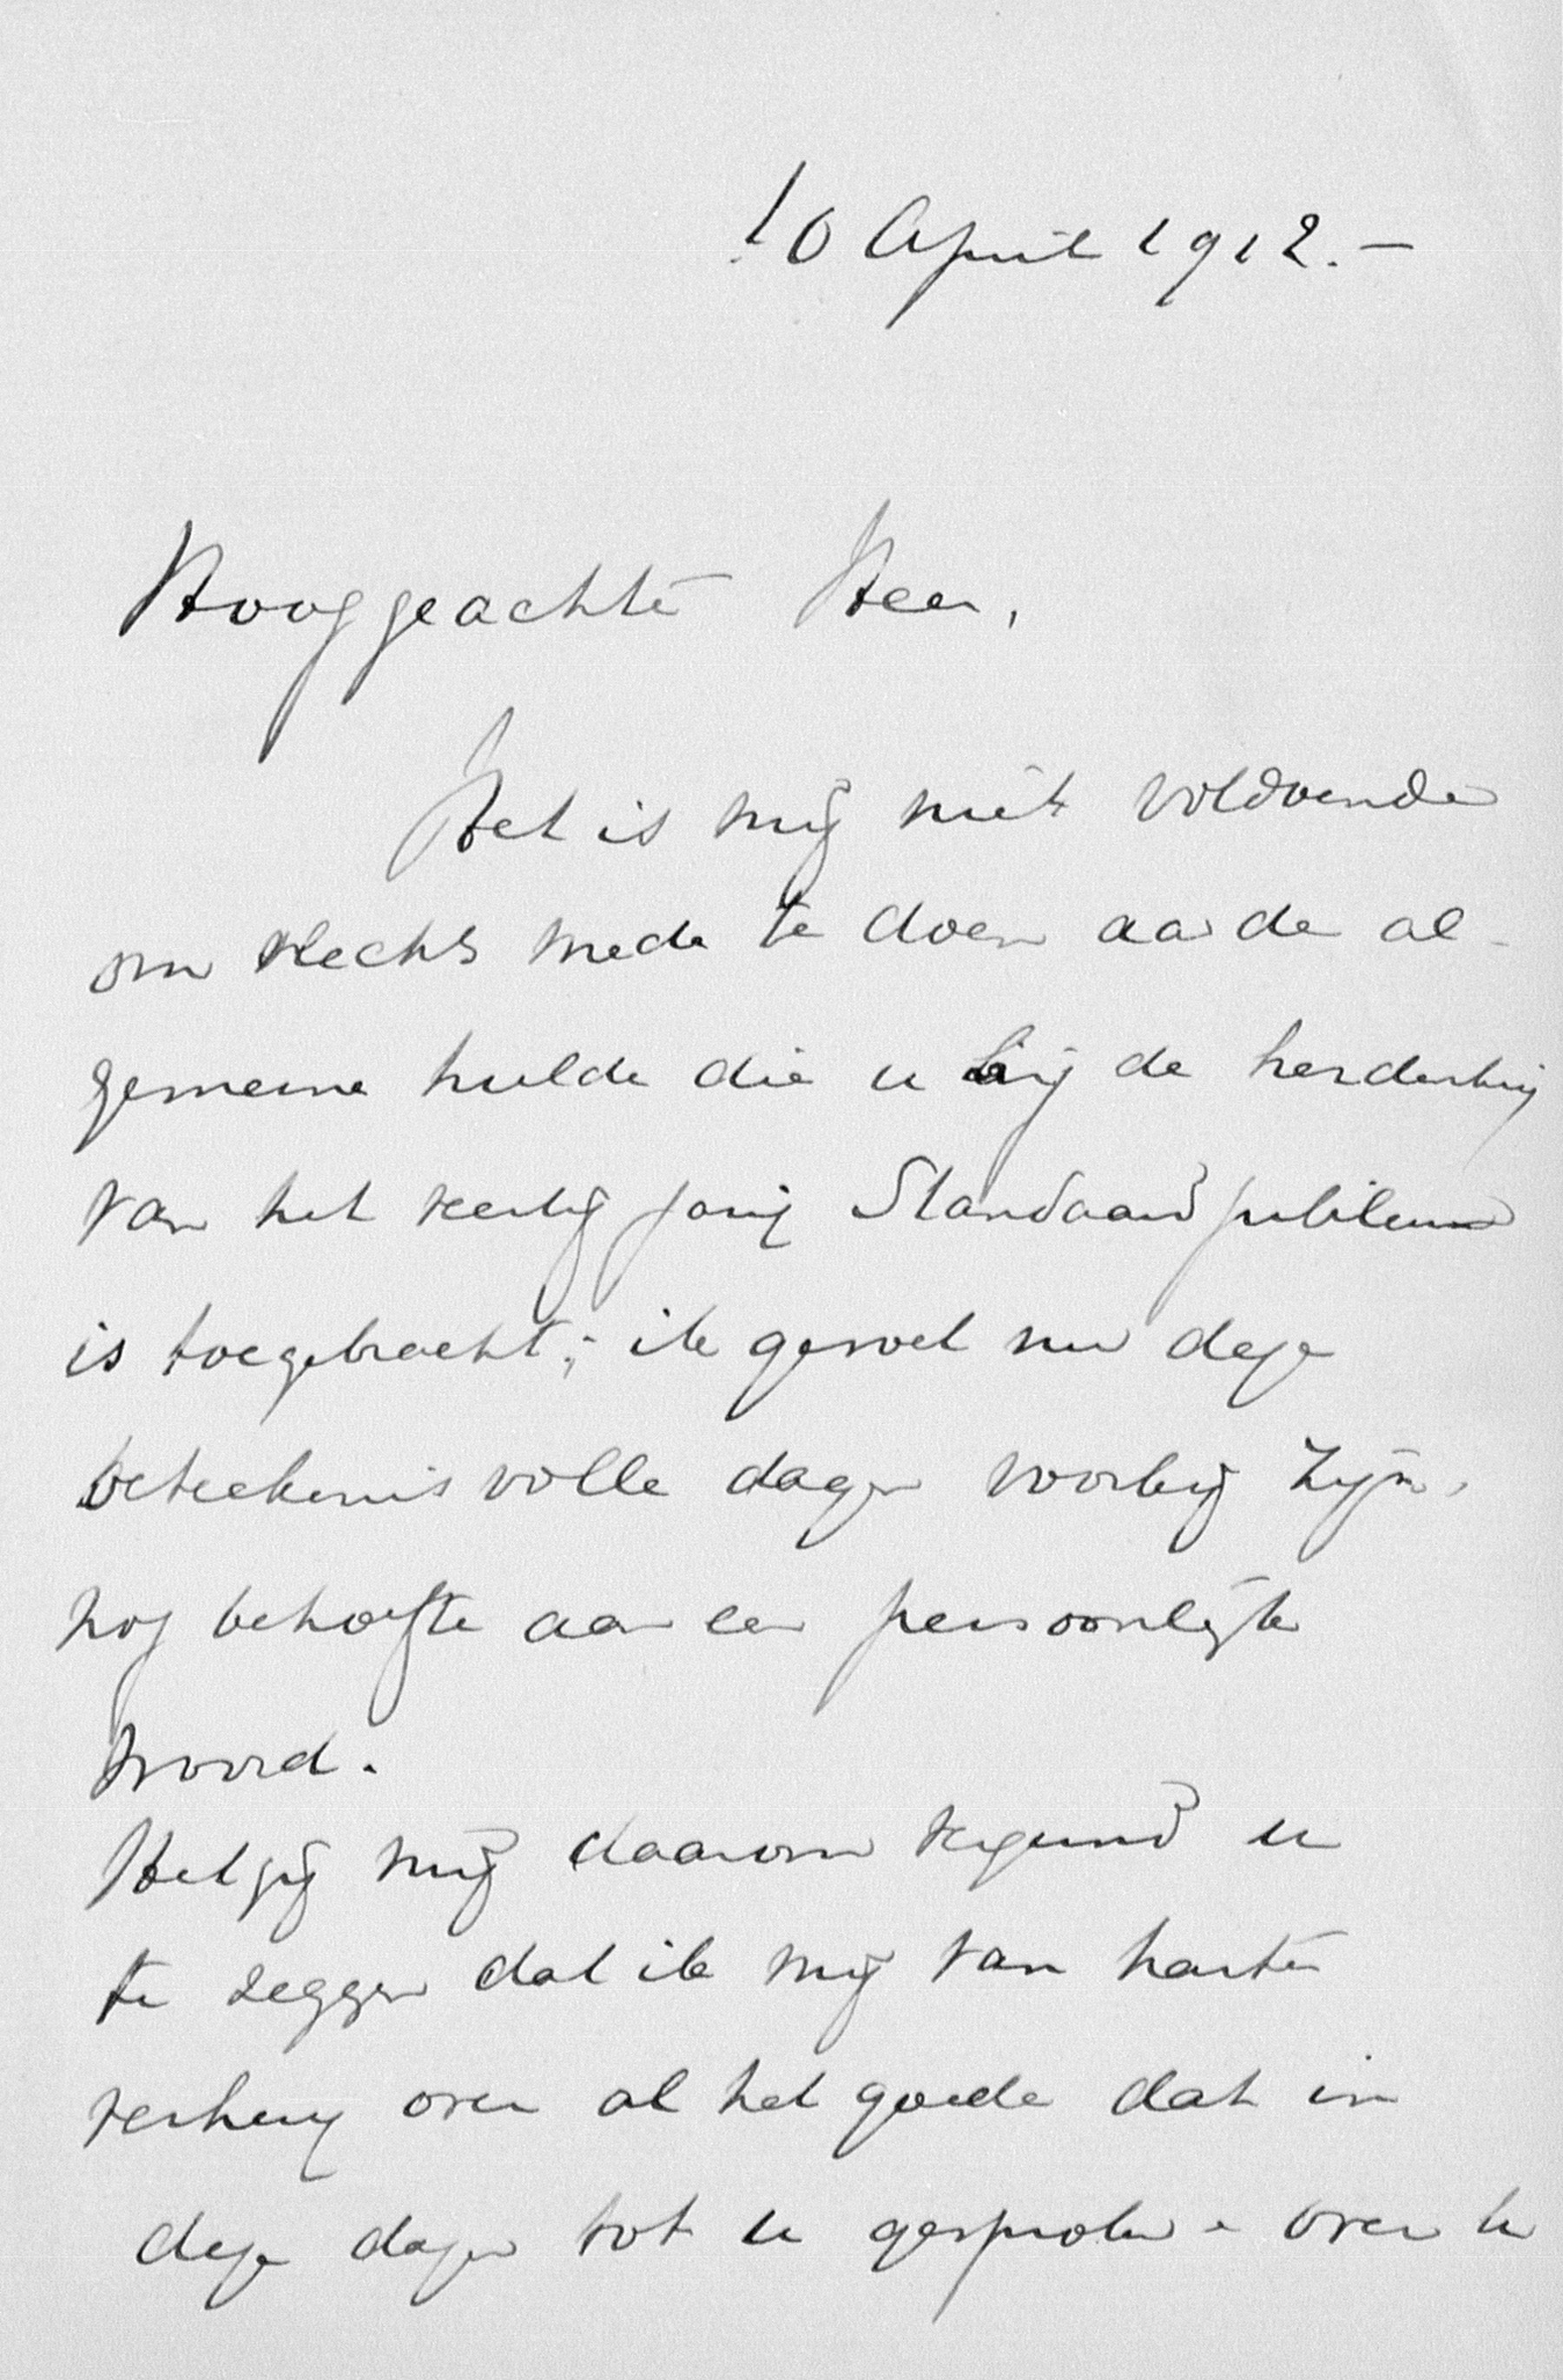 10 April 1912.—
Hooggeachte Heer,
Het is mij niet voldoende
om slechts mede te doen aan de al-
gemeene hulde die u bij de herdenking
van het veertig jarig Standaardjubileum
is toegebracht; ik gevoel nu deze
beteekenisvolle dagen voorbij zijn,
nog behoefte aan een persoonlijk
woord.
Het zij mij daarom vergund u
te zeggen dat ik mij van harte
verheug over al het goede dat in
deze dagen tot u gesproken & over u